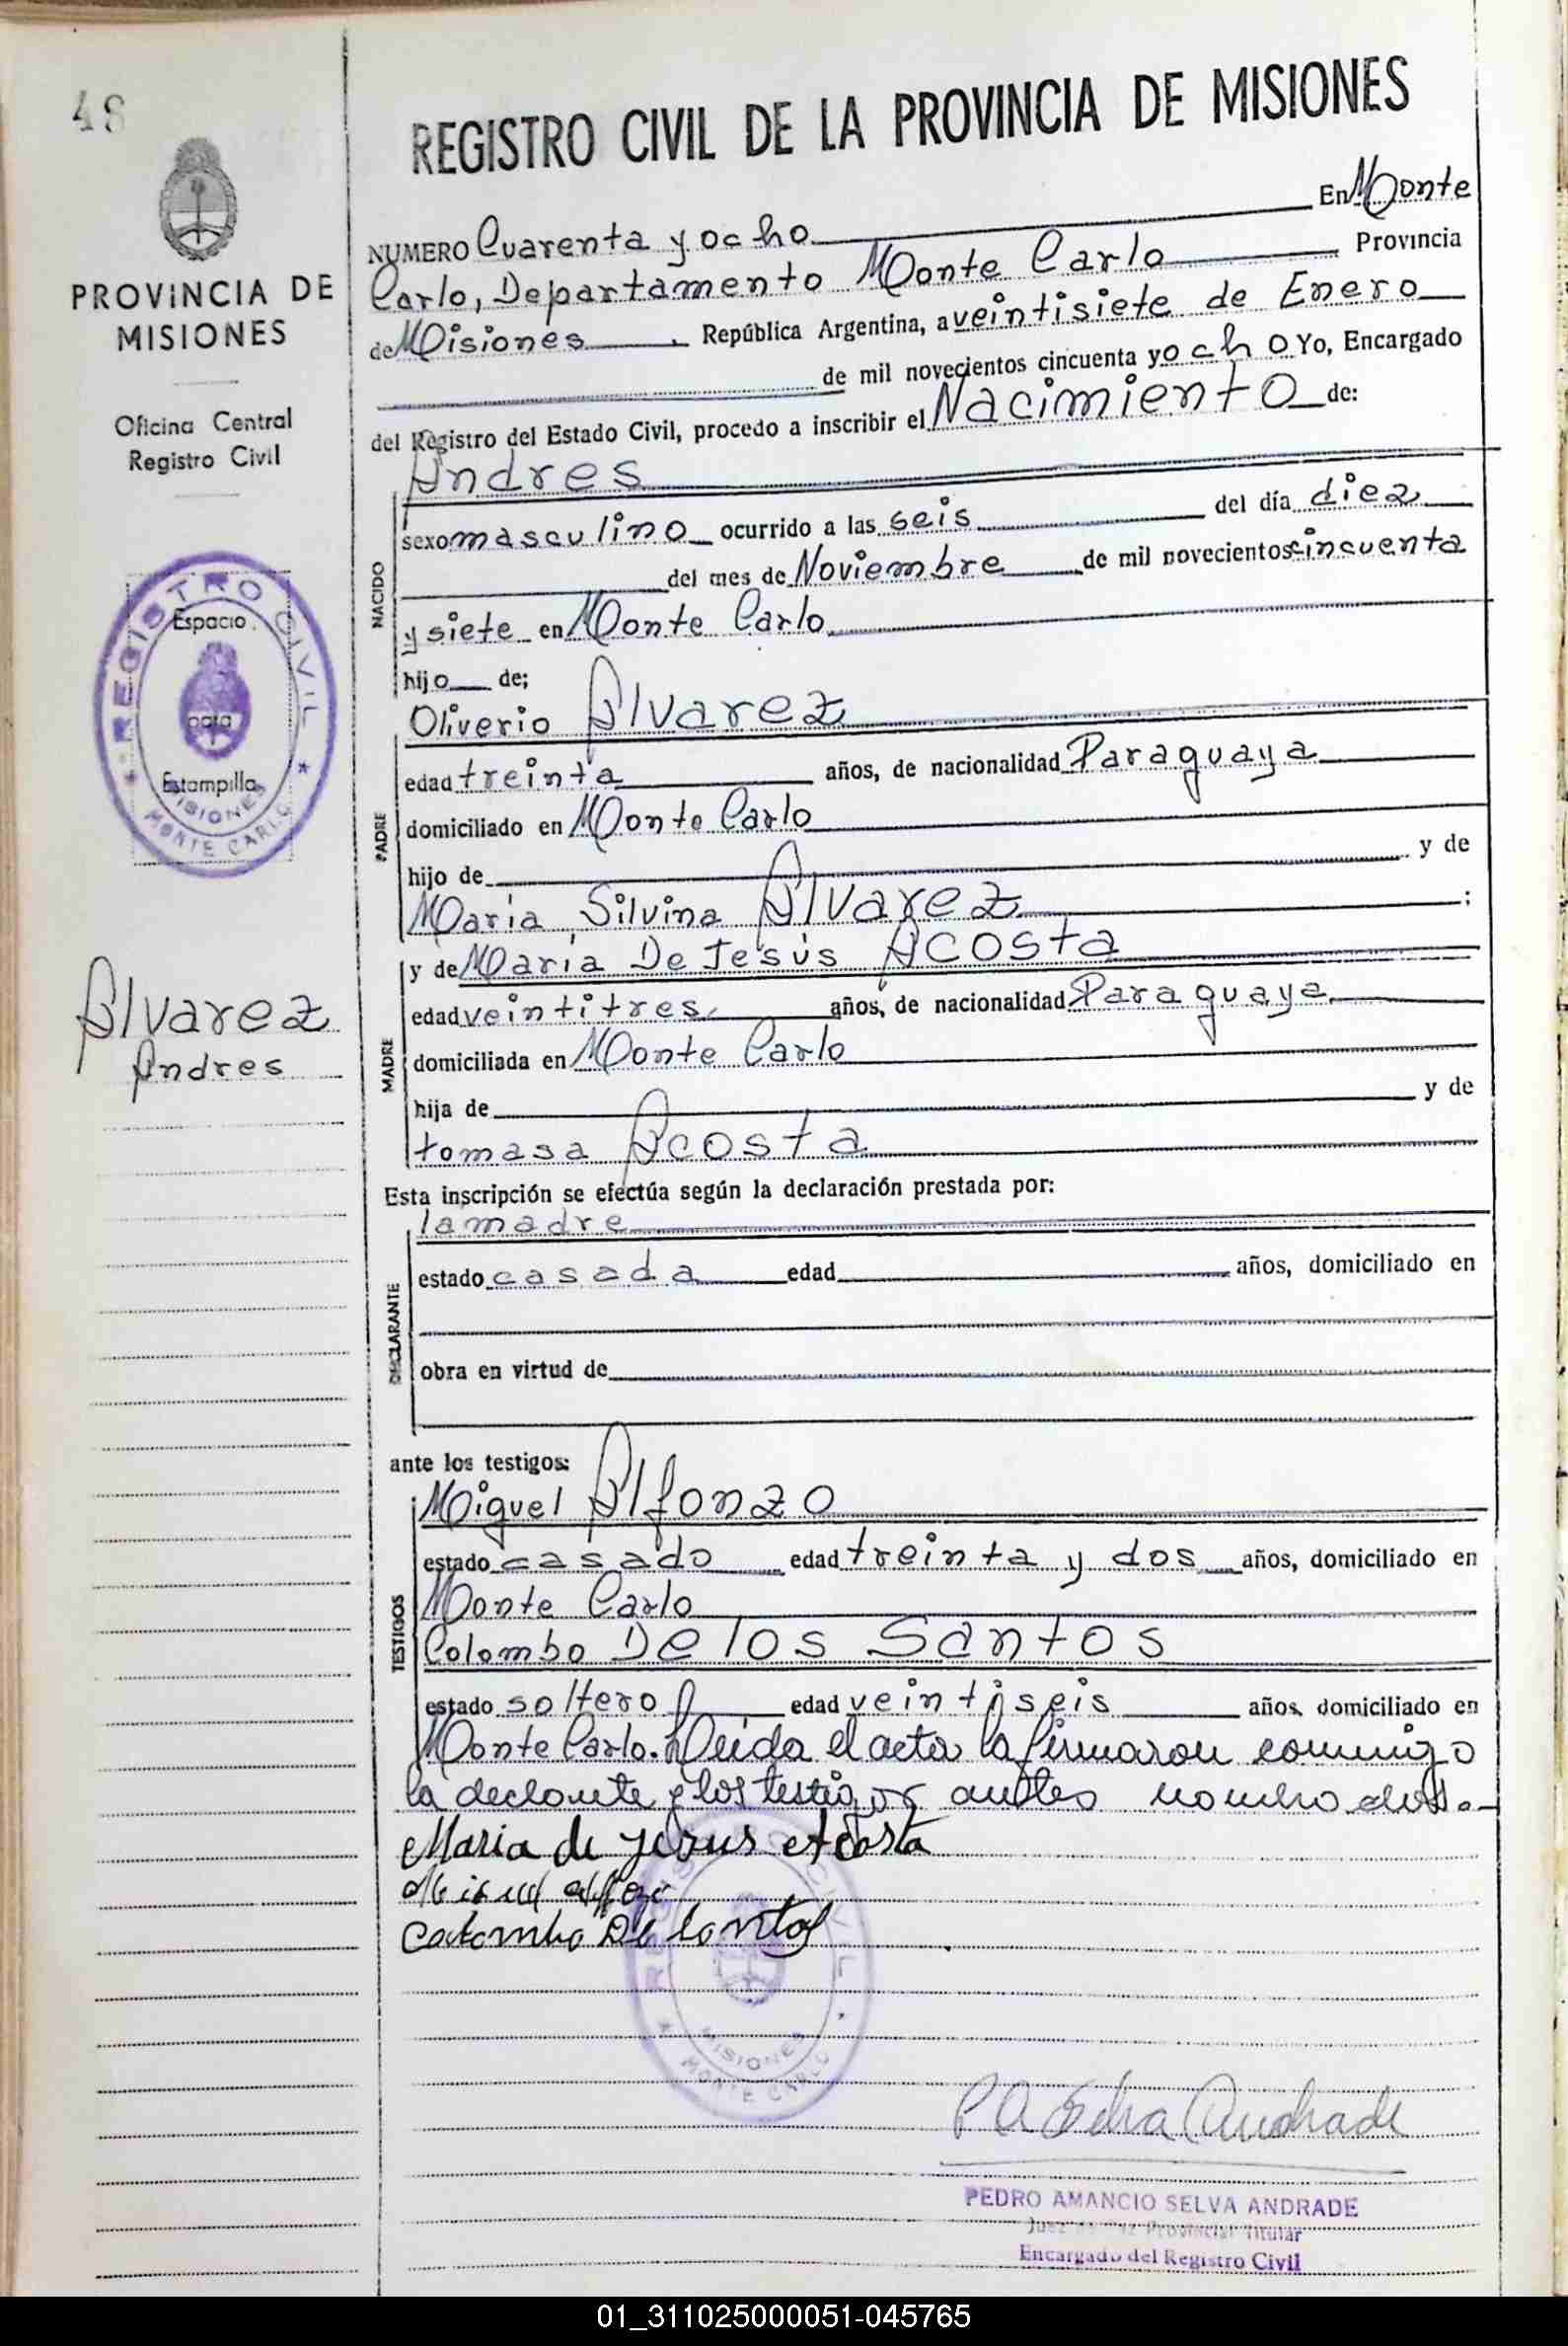 48
PROVINCIA DE
MISIONES
Oficina Central
Registro Civil
REGISTRO CIVIL
Espacio
para
Estampilla
MISIONES
MONTE CARLO
Alvarez
Andres
REGISTRO CIVIL DE LA PROVINCIA DE MISIONES
NUMERO Cuarenta y ocho En Monte
Carlo, Departamento Monte Carlo Provincia
de Misiones, República Argentina, a veintisiete de Enero
de mil novecientos cincuenta y ocho Yo, Encargado
del Registro del Estado Civil, procedo a inscribir el Nacimiento de:
NACIDO
Andres
sexo masculino ocurrido a las seis del día diez
del mes de Noviembre de mil novecientos cincuenta
y siete en Monte Carlo
hijo de;
PADRE
Oliverio Alvarez
edad treinta años, de nacionalidad Paraguaya
domiciliado en Monte Carlo
hijo de y de
Maria Silvina Alvarez ;
MADRE
y de Maria De Jesús Acosta
edad veintitres años, de nacionalidad Paraguaya
domiciliada en Monte Carlo
hija de y de
tomasa Acosta
Esta inscripción se efectúa según la declaración prestada por:
DECLARANTE
la madre
estado casada edad años, domiciliado en
obra en virtud de
ante los testigos:
TESTIGOS
Miguel Alfonzo
estado casado edad treinta y dos años, domiciliado en
Monte Carlo
Colombo De los Santos
estado soltero edad veintiseis años, domiciliado en
Monte Carlo. Leida el acta la firmaron conmigo
la declarante y los testigos antes nombrados.-
Maria de Jesus Acosta
Colombo De Santos
REGISTRO CIVIL
MISIONES
MONTE CARLO
P A Selva Andrade
PEDRO AMANCIO SELVA ANDRADE
Juez de Paz Provincial Titular
Encargado del Registro Civil
01_311025000051-045765